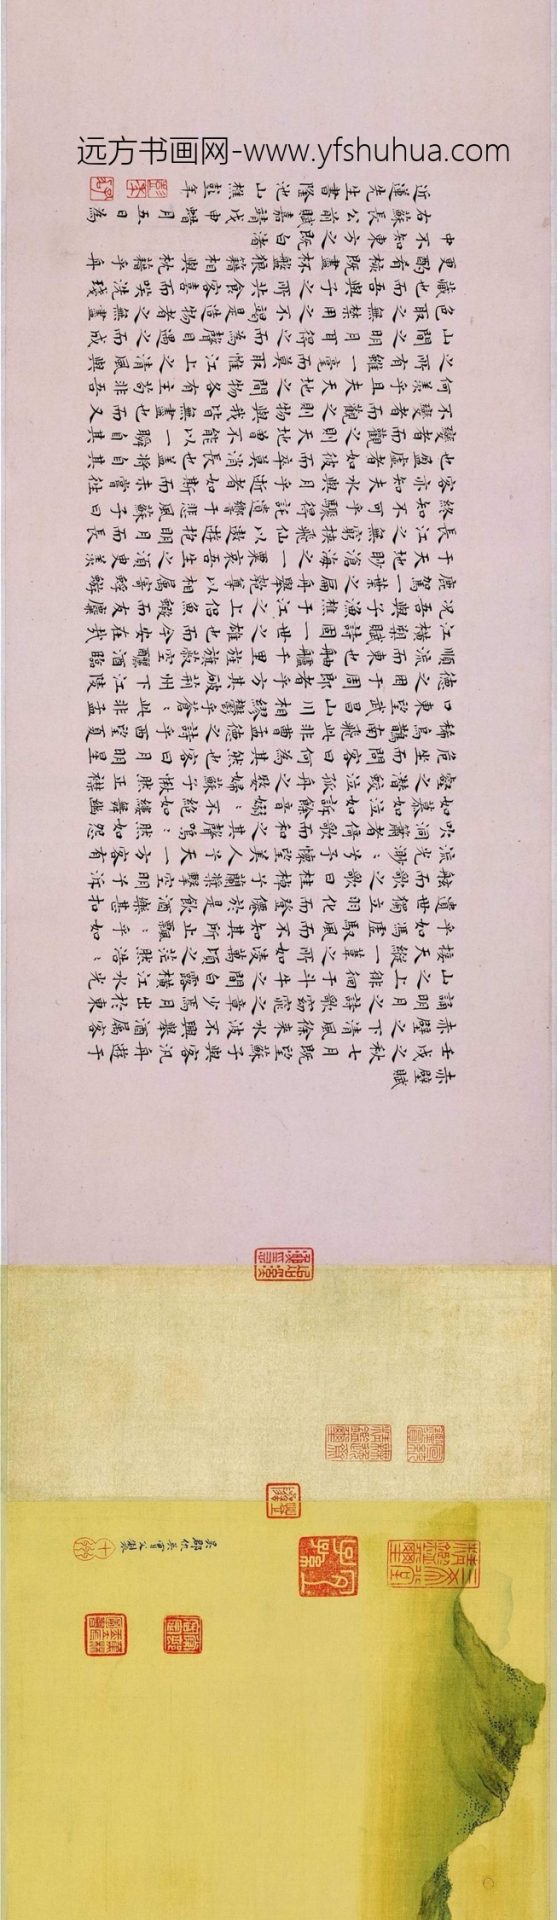 远方书画网-www.yfshuhua.com
赤壁賦
壬戌之秋七月既望蘇子與客汎舟遊于
赤壁之下清風徐來水波不興舉酒屬客
誦明月之詩歌窈窕之章少焉月出於東
山之上徘徊於斗牛之間白露橫江水光
接天縱一葦之所如凌萬頃之茫然浩:
乎如馮虛馭風而不知其所止飄:乎如
遺世獨立羽化而登僊於是飲酒樂甚扣
舷而歌之歌曰桂棹兮蘭槳擊空明兮泝
流光渺:兮予懷望美人兮天一方客有
吹洞簫者倚歌而和之其聲嗚:然如怨
如慕如泣如訴餘音嫋:不絕如縷舞幽
壑之潛蛟泣孤舟之嫠婦蘇子愀然正襟
危坐而問客曰何為其然也客曰月明星
稀烏鵲南飛此非曹孟德之詩乎西望夏
口東望武昌山川相繆鬱乎蒼:此非孟
德之困于周郎者乎方其破荊州下江陵
順流而東也舳艫千里旌旗蔽空釃酒臨
江橫槊賦詩固一世之雄也而今安在哉
況吾與子漁樵于江之上侶魚鰕而友麋
鹿駕一葉之扁舟舉匏尊以相屬寄蜉蝣
于天地眇滄海之一粟哀吾生之須臾羨
長江之無窮挾飛仙以遨遊抱明月而長
終知不可乎驟得託遺響於悲風蘇子曰
客亦知夫水與月乎逝者如斯而未嘗往
也盈虛者如彼而卒莫消長也蓋將自其
變者而觀之則天地曾不能以一瞬自其
不變者而觀之則物與我皆無盡也而又
何羨乎且夫天地之間物各有主苟非吾
之所有雖一毫而莫取惟江上之清風與
山間之明月耳得之而為聲目遇之而成
色取之無禁用之不竭是造物者之無盡
藏也而吾與子之所共食客喜而笑洗盞
更酌肴核既盡杯盤狼籍相與枕籍乎舟
中不知東方之既白 渚
右蘇長公前賦嘉靖戊申蜡月五日為
近蓬先生書隆池山樵彭年
吳郡仇英實父製